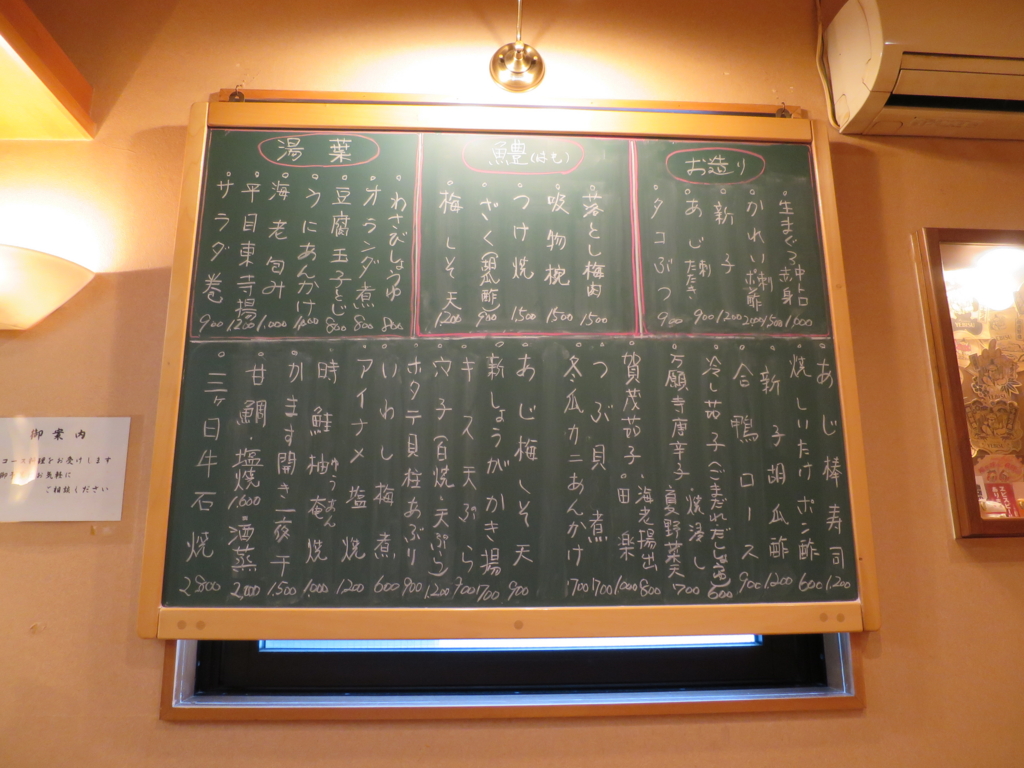 お造り
生まぐろ中トロ赤身 1500 1000
かれい刺ポン酢 2000
新子 1200
あじ刺たたき 900
タコぶつ 900
鱧(はも)
落とし梅肉 1500
吸物椀 1500
つけ焼 1500
ざく(胡瓜酢) 900
梅しそ天 1200
湯葉
わさびしょうゆ 800
オランダ煮 800
豆腐玉子とじ 800
うにあんかけ
海老包み 1,000
平目東寺揚 1200
サラダ巻 900
あじ棒寿司 1,200
焼しいたけポン酢 600
新子胡瓜酢 1,200
合鴨ロース 900
冷し茄子(ごまだれだししょうゆ) 600
万願寺唐辛子 焼浸し 700
夏野菜天 800
賀茂茄子・田楽 海老揚出 1000
つぶ貝煮 700
冬瓜カニあんかけ 1700
あじ梅しそ天 900
新しょうがかき揚 700
キス天ぷら 700
穴子(白焼・天ぷら) 1200
ホタテ貝柱あぶり 900
いわし梅煮 600
アイナメ塩焼 1200
時鮭柚庵焼 ゆうあん 1000
かます開き一夜干 1,500
甘鯛・塩焼 1600・酒蒸 2,100
三ヶ日牛石焼 2,800
御案内